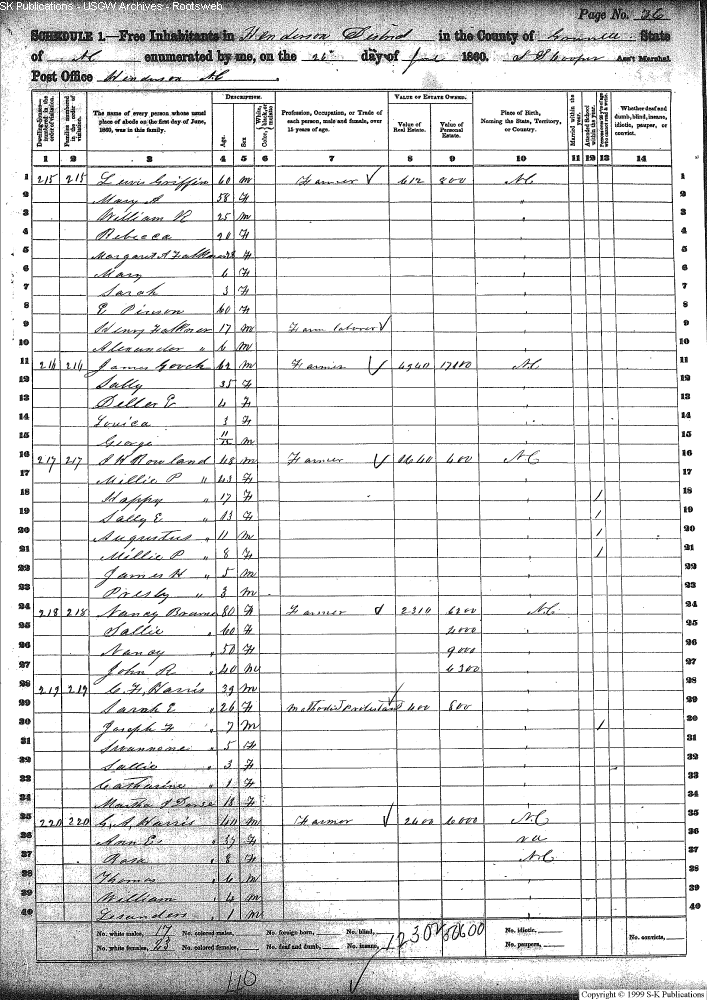 SK Publications - USGW Archives - Rootsweb
Page No. 26
SCHEDULE 1.—Free Inhabitants in Henderson District in the County of State
of NC enumerated by me, on the 26 day of June 1860. Cooper Ass't Marshal.
Post Office Henderson NC
Dwelling-houses—numbered in the order of visitation.
Families numbered in the order of visitation.
The name of every person whose usual place of abode on the first day of June, 1860, was in this family.
DESCRIPTION.
Age.
Sex.
Color, White, black, or mulatto
Profession, Occupation, or Trade of each person, male and female, over 15 years of age.
VALUE OF ESTATE OWNED.
Value of Real Estate.
Value of Personal Estate.
Place of Birth, Naming the State, Territory, or Country.
Married within the year.
Attended School within the year.
Whether deaf and dumb, blind, insane, idiotic, pauper, or convict.
1 2 3 4 5 6 7 8 9 10 11 12 13 14
1 215 215 Lewis Griffin 60 m Farmer 612 800 NC 1
2 Mary A 58 F " 2
3 William R 25 m 3
4 Rebecca 20 F 4
5 Margaret A Falkner F 5
6 Mary 6 F 6
7 Sarah 3 F 7
8 E Pinson 60 F 8
9 Henry Falkner 17 m Farm laborer 9
10 Alexander " 6 m 10
11 216 216 James Gooch 62 m Farmer NC 11
12 Sally 35 F 12
13 E 4 F 13
14 Louica 3 F 14
15 George 11/12 m 15
16 217 217 H Rowland 48 m Farmer 600 NC 16
17 Millie P " 43 F 17
18 Happy " 17 F / 18
19 Sally E " 13 F / 19
20 Augustus " 11 m / 20
21 Millie P " 8 F / 21
22 James H " 5 m 22
23 Presby " 3 m 23
24 218 218 Nancy 80 F Farmer 2310 6200 NC 24
25 Sallie " 60 F 2000 25
26 Nancy " 50 F 9000 26
27 John R " 40 m 6300 27
28 219 219 C F Harris 39 m 28
29 Sarah E " 26 F Methodist Protestant 400 800 29
30 Joseph F " 7 m / 30
31 " 5 F 31
32 Sallie " 3 F 32
33 Catharine " 1 F 33
34 Martha 18 F 34
35 220 220 A Harris 40 m Farmer 2600 6000 NC 35
36 Ann E " 37 F Va 36
37 Rosa " 8 F NC 37
38 Thomas " 6 m 38
39 William " 4 m 39
40 " 1 m 40
No. white males, 17 No. colored males, No. foreign born, No. blind, No. idiotic,
No. white females, 23 No. colored females, No. deaf and dumb, No. insane, No. paupers, No. convicts,
40
Copyright © 1999 S-K Publications